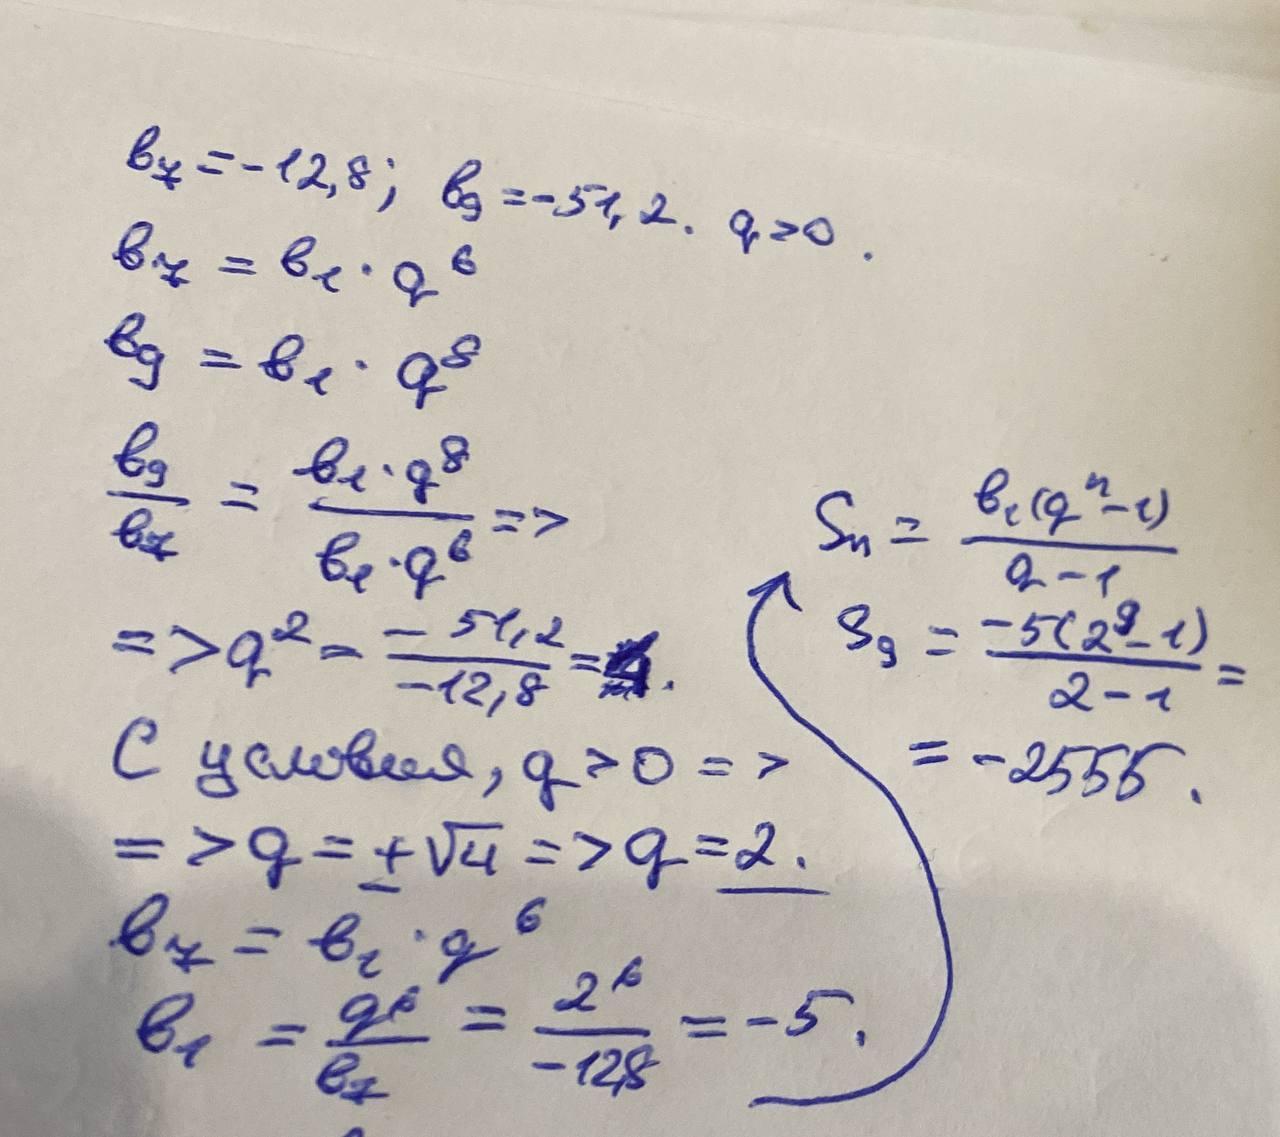 b₇ = -12,8; b₉ = -51,2. q>0.
b₇ = b₁ · q⁶
b₉ = b₁ · q⁸
b₉/b₇ = (b₁ · q⁸)/(b₁ · q⁶) =>
=> q² = (-51,2)/(-12,8) = 4.
С условия, q > 0 =>
=> q = ±√4 => q = 2.
b₇ = b₁ · q⁶
b₁ = q⁶/b₇ = 2⁶/(-12,8) = -5.
Sₙ = b₁(qⁿ-1)/(q-1)
S₉ = -5(2⁹-1)/(2-1) =
= -2555.